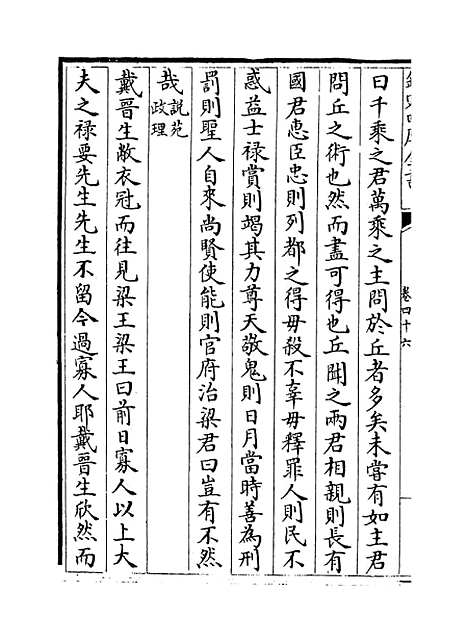 欽定四庫全書
卷四十六
曰千乘之君萬乘之主問於丘者多矣未嘗有如主君
問丘之術也然而盡可得也丘聞之兩君相親則長有
國君惠臣忠則列都之得毋殺不辜毋釋罪人則民不
惑益士禄賞則竭其力尊天敬鬼則日月當時善為刑
罰則聖人自來尚賢使能則官府治梁君曰豈有不然
哉說苑政理
戴晉生敝衣冠而往見梁王梁王曰前日寡人以上大
夫之禄要先生先生不留今過寡人耶戴晉生欣然而